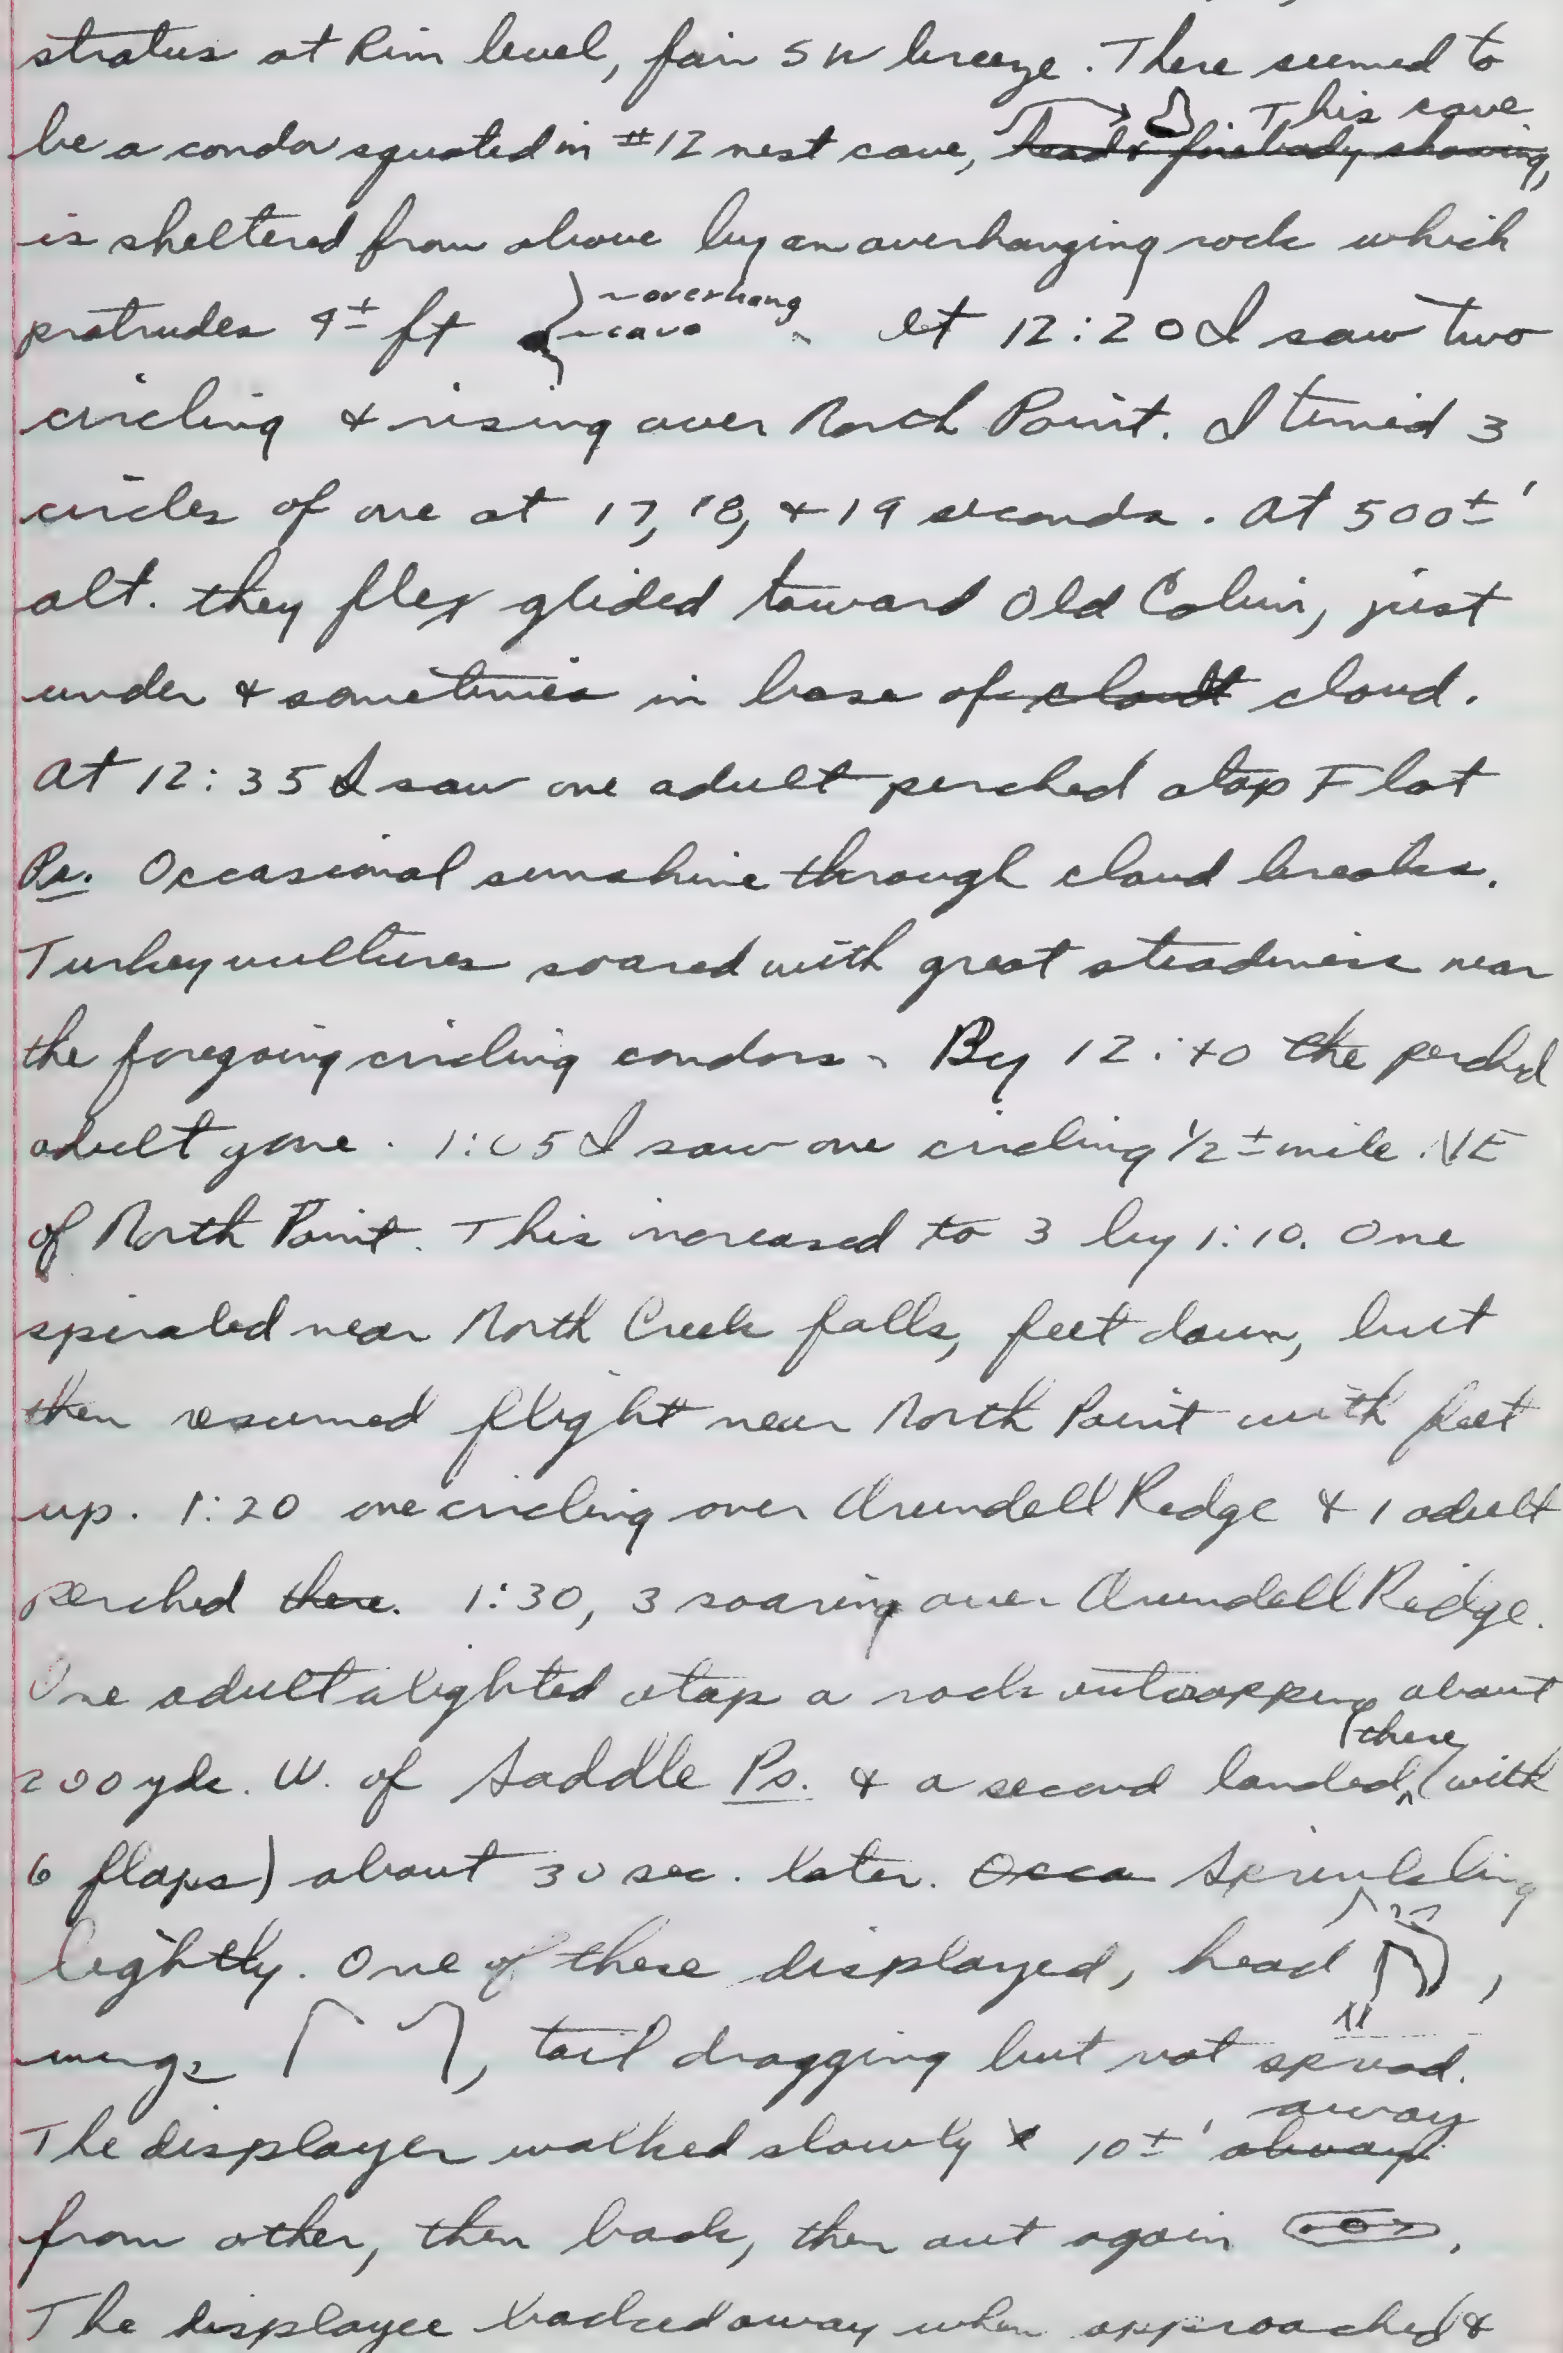 stratus at Rim level, fair SW breeze. There seemed to
be a condor squated in #12 nest cave, head & forebody showing, . This cave
is sheltered from above by an overhanging rock which
protrudes 4± ft ~overhang ~cave . At 12:20 I saw two
circling & rising over North Point. I timed 3
circles of one at 17, 18, & 19 seconds. At 500±'
alt. they flex glided toward Old Cabin, just
under & sometimes in base of cloudt cloud.
At 12:35 I saw one adult perched atop Flat
Ps. Occasional sunshine through cloud breaks.
Turkey vultures soared with great steadiness near
the foregoing circling condors. By 12:40 the perched
adult gone. 1:05 I saw one circling 1/2± mile NE
of North Point. This increased to 3 by 1:10. One
spiraled near North Creek falls, feet down, but
then resumed flight near North Point with feet
up. 1:20 one circling over Arundell Ridge & 1 adult
perched there. 1:30, 3 soaring over Arundell Ridge.
One adult alighted atop a rock outcropping about
200 yds. W. of Saddle Ps. & a second landed there (with
6 flaps) about 30 sec. later. Occa Sprinkling
lightly. One of these displayed, head ,
wings , tail dragging but not spread.
The displayer walked slowly 10±' away
from other, then back, then out again .
The displayee backed away when approached &